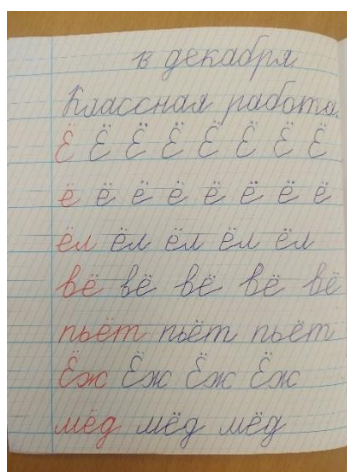 18 декабря
Классная работа.
Ё Ё Ё Ё Ё Ё Ё Ё
ё ё ё ё ё ё ё ё
ёл ёл ёл ёл ёл
вё вё вё вё вё
пьёт пьёт пьёт
Ёж Ёж Ёж Ёж
мёд мёд мёд